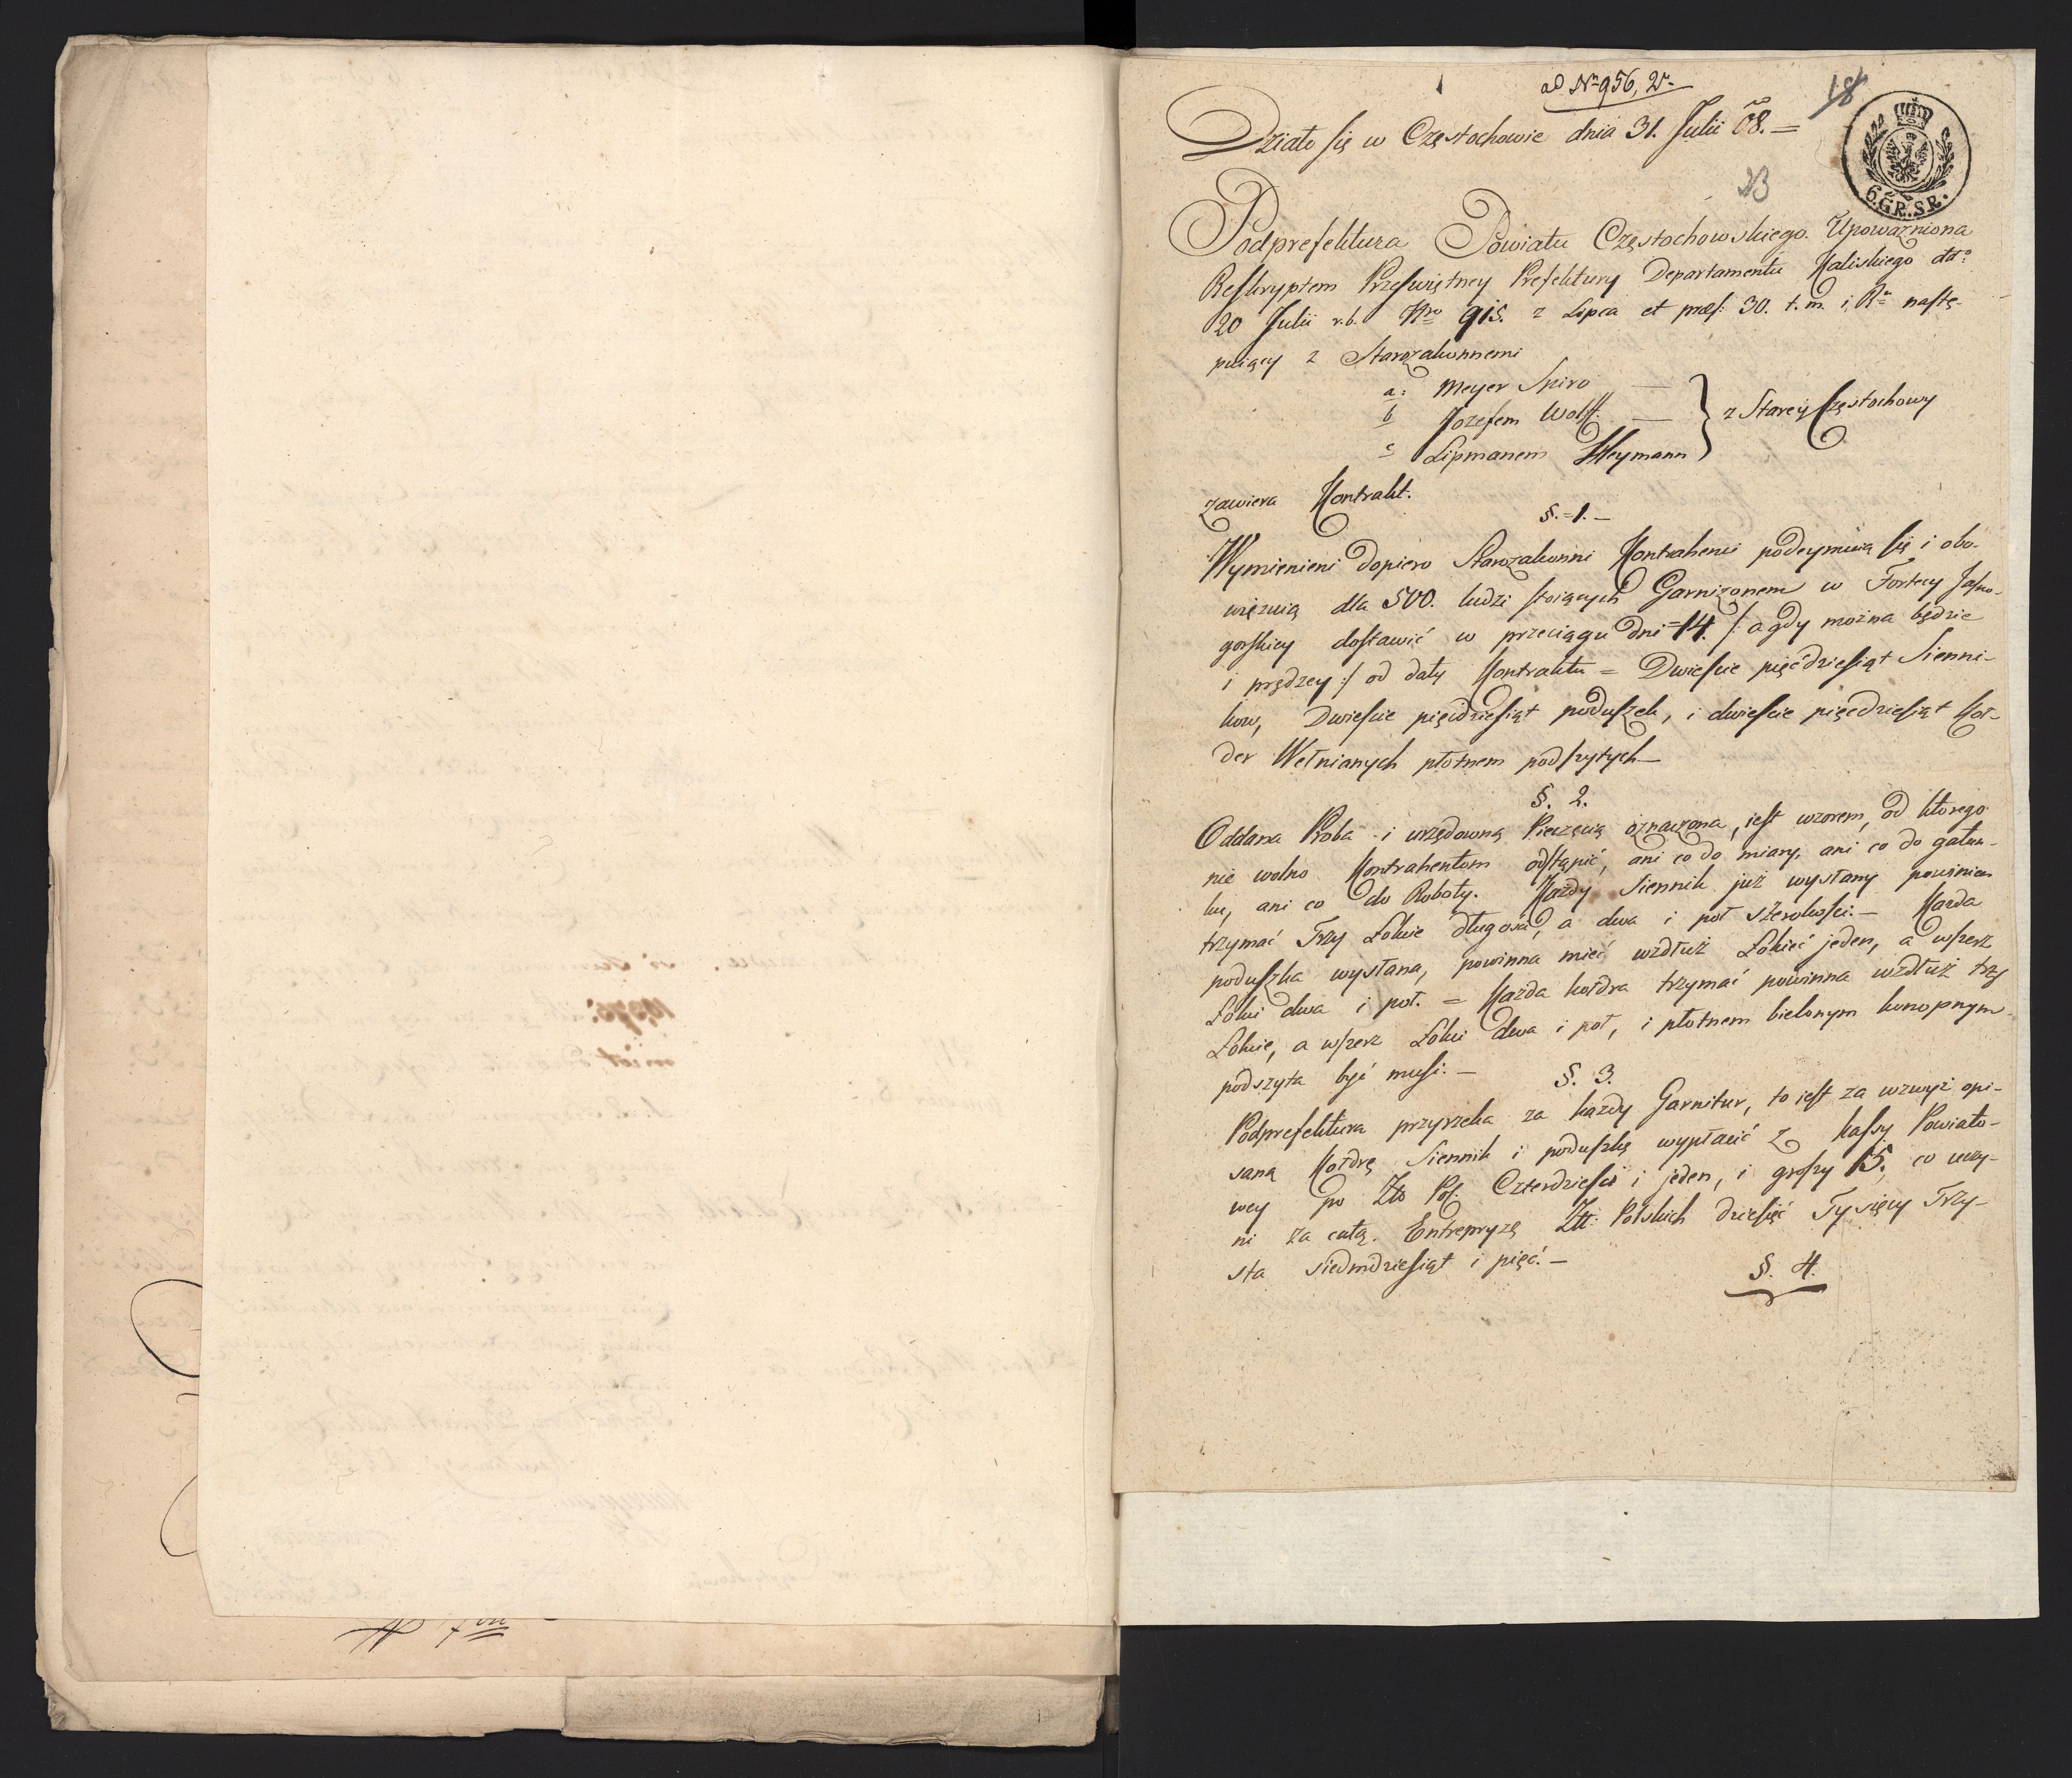 ad Nro 956, 2.
18
Działo się w Częstochowie dnia 31. Julii 08. =
6. GR. SR.
23
Podprefektura Powiatu Częstochowskiego. Upoważniona
Reskryptem Przeświętney Prefektury Departamentu Kaliskiego dtto
20 Julii r.b. Nro 915. z Lipca et præs: 30. t. m. i R. nastę-
puiący z Starozakonnemi
a: Meyer Spiro —
b Jozefem Wolff. — } z Starey Częstochowy
c Lipmanem Heymann
zawiera Kontrakt.
§. = 1. —
Wymienieni dopiero Starozakonni Kontrahenci podeymuią się i obo-
więzuią dla 500. ludzi stoiących Garnizonem w Fortecy Jasno-
gorskiey dostawić w przeciągu dni = 14. /: a gdy można będzie
i prędzey :/ od daty Kontraktu = Dwieście pięćdziesiąt Sienni-
kow, Dwieście pięćdziesiąt poduszek, i dwieście pięćdziesiąt koł-
der Wełnianych płotnem podszytych —
§. 2.
Oddana Proba i urzędowną Pieczęcią oznaczona, iest wzorem, od ktorego
nie wolno Kontrahentom odstąpić, ani co do miary, ani co do gatun-
ku, ani co do Roboty. Każdy Siennik już wysłany powinien
trzymać Trzy Łokcie długości, a dwa i poł szerokości. — Każda
poduszka wysłana, powinna mieć wzdłuż Łokieć jeden, a wszerz
Łokci dwa i poł. = Każda kołdra trzymać powinna wzdłuż trzy
Łokcie, a wszerz Łokci dwa i poł, i płotnem bielonym konopnym
podszyta być musi. —
§. 3.
Podprefektura przyrzeka za każdy Garnitur, to iest za wzwyż opi-
saną Kołdrę Siennik i poduszkę wypłacić z kassy Powiato-
wey po Złt. Pol. Czterdzieści i jeden, i groszy 15. co uczy-
ni za całą Entrepryzę Złt: Polskich dziesięć Tysięcy Trzy-
sta siedmdziesiąt i pięć. —
§. 4.